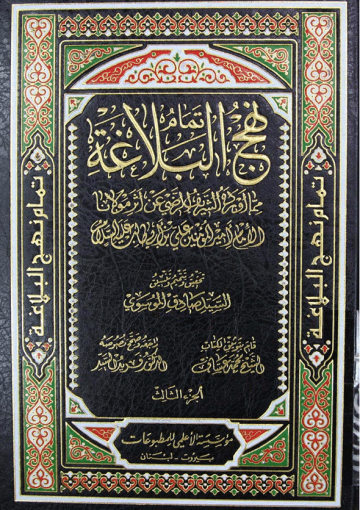 تمام
نهج البلاغة
مما أورده الشريف الرضي عن أثر مولانا
الإمام أمير المؤمنين علي بن أبي طالب عليه السلام
تحقيق وتتميم وتنسيق
السيد صادق الموسوي
قام بتوثيق الكتاب
الشيخ محمد عساف
راجعه وصحح نصوصه
الدكتور فريد السيد
الجزء الثالث
مؤسسة الأعلمي للمطبوعات
بيروت - لبنان
تمام نهج البلاغة
تمام نهج البلاغة